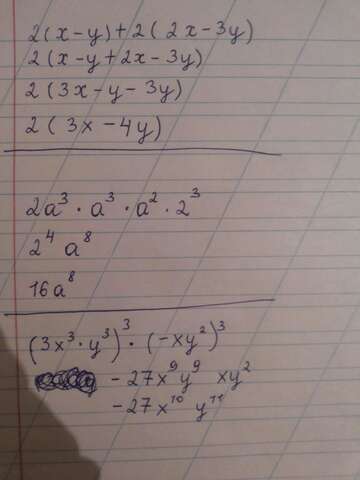 2(x-y)+2(2x-3y)
2(x-y+2x-3y)
2(3x-y-3y)
2(3x-4y)
2a³·a³·a²·2³
2⁴ a⁸
16a⁸
(3x³·y³)³·(-xy²)³
-27x⁹y⁹ xy²
-27x¹⁰ y¹¹